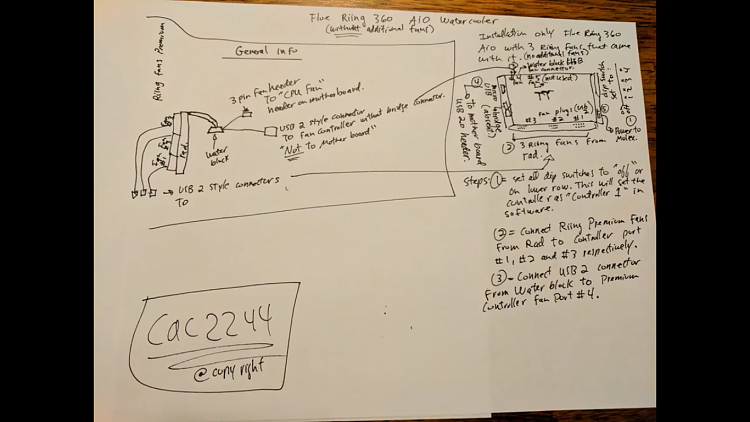 Floe Riing 360 AIO Watercooler
(without additional fans)
Riing Fans Premium
General Info
3 pin Fan header
To "CPU Fan"
header on motherboard.
USB 2 style connector
To fan controller without bridge connector.
"Not To Mother board"
water
block
Rad.
USB 2 style connectors
To
Installation only Floe Riing 360
AIO with 3 Riing fans that came
with it. (no additional fans)
water block USB
fan connector.
#5 (not used)
Fan plugs (USB 2)
#3 #2 #1
micro
USB
To mother board
USB 2.0 header.
dip switch
set to:
1
Power to
Molex.
2 3 Riing Fans From
rad.
Steps: 1 = set all dip switches to "off" or
on lower row. This will set the
controller as "Controller 1" in
software.
2 = Connect Riing Premium Fans
From Rad to Controller port
#1, #2 and #3 respectively.
3 - Connect USB 2 connector
From Water block to Premium
Controller fan Port #4.
Cac2244
@copyright